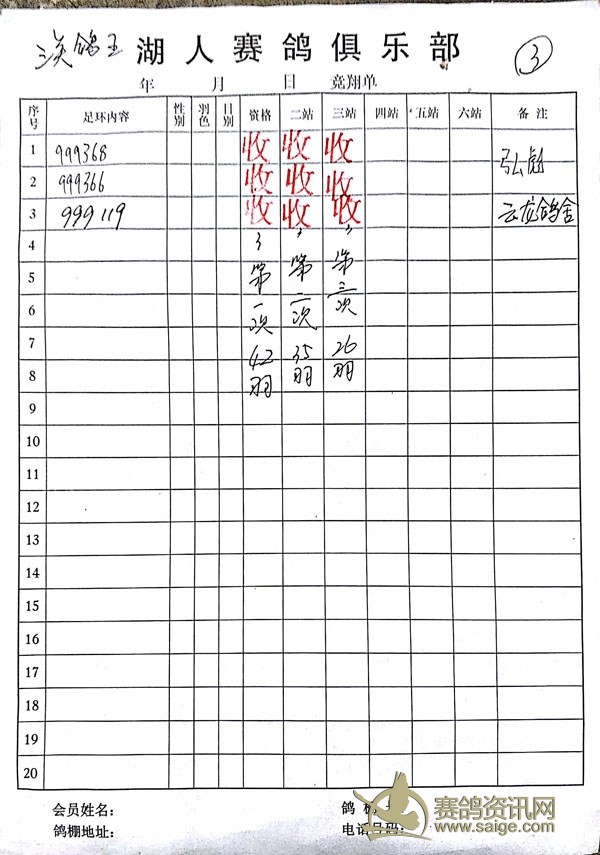 三关鸽王 湖人赛鸽俱乐部 ③
年 月 日 竞翔单
序号 足环内容 性别 羽色 日别 资格 二站 三站 四站 五站 六站 备注
1 999368 收 收 收 弘彪
2 999366 收 收 收
3 999119 收 收 收 云龙鸽舍
4 3 3 3
5 第 第 第
6 一次 二次 三次
7 42 35 26
8 羽 羽 羽
9
10
11
12
13
14
15
16
17
18
19
20
会员姓名: 鸽
鸽棚地址: 电话号码:
赛鸽资讯网
www.saige.com